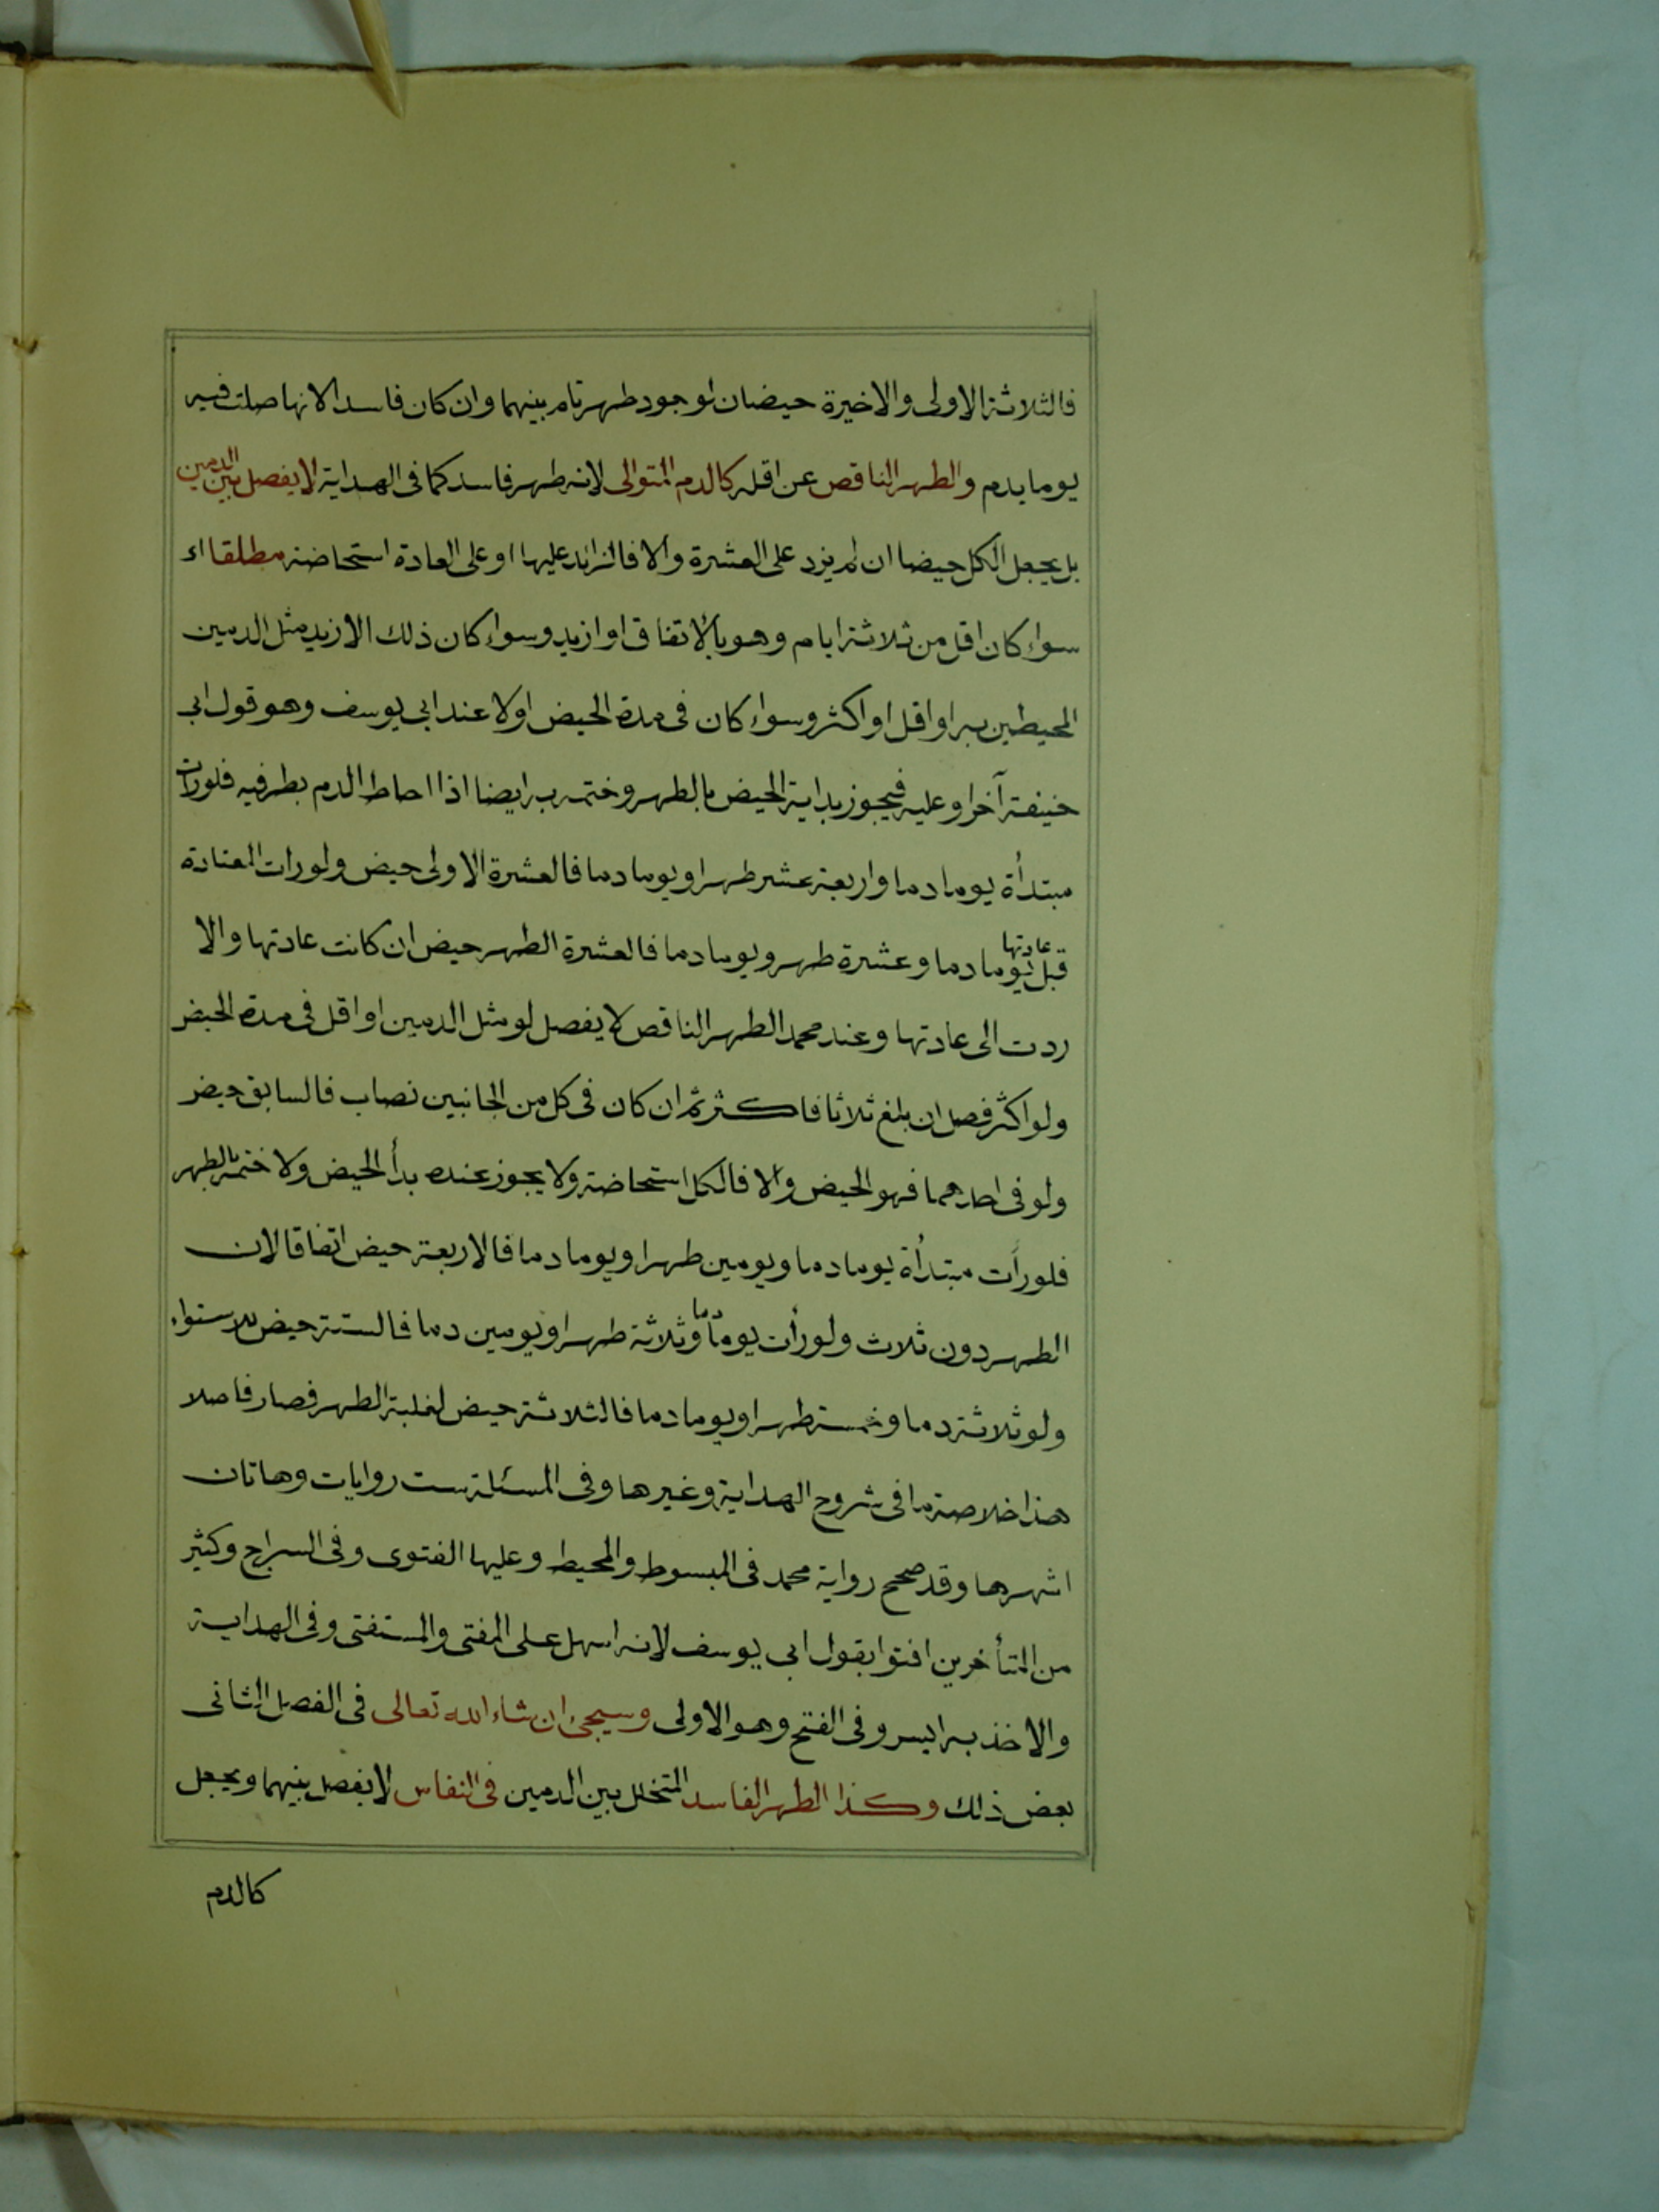 فالثلاثة الاولى والاخيرة حيضان لوجود طهر تام بينهما وان كان فاسدا لانها صلت فيه
يوما بدم والطهر الناقص عن اقله كالدم المتوالى لانه طهر فاسد كما فى الهداية لا يفصل بين الدمين
بل يجعل الكل حيضا ان لم يزد على العشرة والا فالزائد عليها او على العادة استحاضة مطلقا اى
سواء كان اقل من ثلاثة ايام وهو بالاتفاق او ازيد وسواء كان ذلك الازيد مثل الدمين
المحيطين به او اقل او اكثر وسواء كان فى مدة الحيض اولا عند ابى يوسف وهو قول ابى
حنيفة آخرا وعليه فيجوز بداية الحيض بالطهر وختمه به ايضا اذا احاط الدم بطرفيه فلو رات
مبتدأة يوما دما واربعة عشر طهرا ويوما دما فالعشرة الاولى حيض ولو رات المعتادة
قبل عادتها يوما دما وعشرة طهر ويوما دما فالعشرة الطهر حيض ان كانت عادتها والا
ردت الى عادتها وعند محمد الطهر الناقص لا يفصل لو مثل الدمين او اقل فى مدة الحيض
ولو اكثر فصل ان بلغ ثلاثا فاكثر ثم ان كان فى كل من الجانبين نصاب فالسابق حيض
ولو فى احدهما فهو الحيض والا فالكل استحاضة ولا يجوز عنده بدأ الحيض ولا ختمه بالطهر
فلو رأت مبتدأة يوما دما ويومين طهرا ويوما دما فالاربعة حيض اتفاقا لان
الطهر دون ثلاث ولو رأت يوما دما وثلاثة طهرا ويومين دما فالستة حيض للاستواء
ولو ثلاثة دما وخمسة طهرا ويوما دما فالثلاثة حيض لغلبة الطهر فصار فاصلا
هذا خلاصة ما فى شروح الهداية وغيرها وفى المسئلة ست روايات وهاتان
اشهرها وقد صحح رواية محمد فى المبسوط والمحيط وعليها الفتوى وفى السراج وكثير
من المتأخرين افتوا بقول ابى يوسف لانه اسهل على المفتى والمستفتى وفى الهداية
والاخذ به ايسر وفى الفتح وهو الاولى وسيجئ ان شاء الله تعالى فى الفصل الثانى
بعض ذلك وكذا الطهر الفاسد المتخلل بين الدمين فى النفاس لا يفصل بينهما ويجعل
كالدم